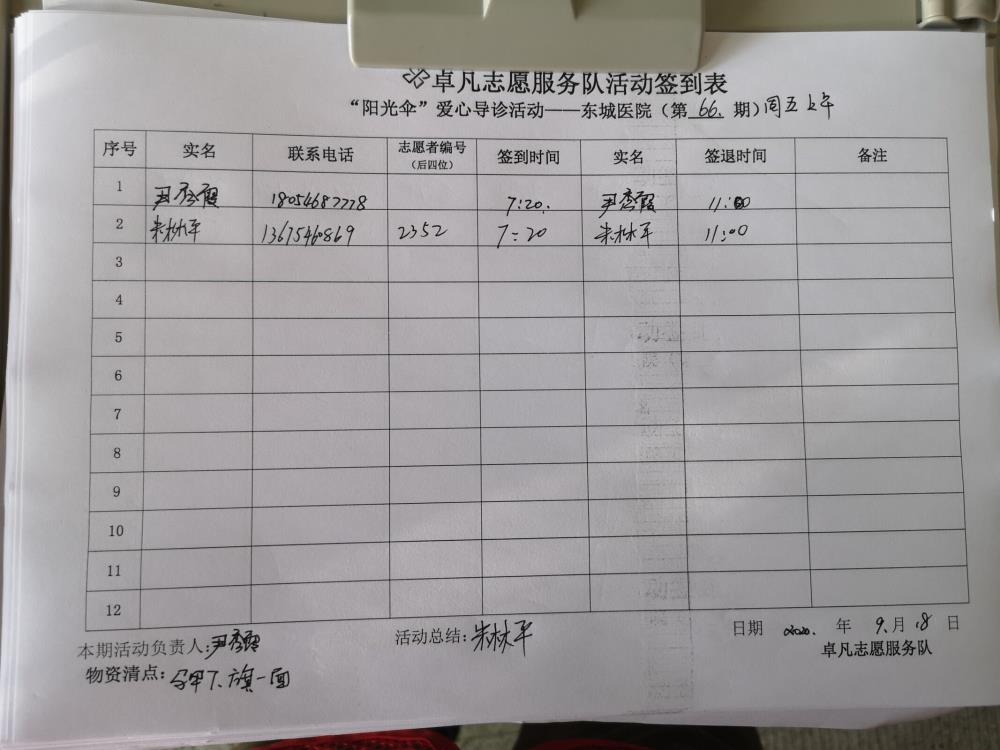 卓凡志愿服务队活动签到表
“阳光伞”爱心导诊活动——东城医院（第 66. 期）周五上午
序号 实名 联系电话 志愿者编号（后四位） 签到时间 实名 签退时间 备注
1 尹秀霞 18054687778 7:20. 尹秀霞 11:00
2 朱林平 13675460869 2352 7:20 朱林平 11:00
3
4
5
6
7
8
9
10
11
12
本期活动负责人:尹秀霞 活动总结:朱林平 日期 2020. 年 9.月 18 日
卓凡志愿服务队
物资清点: 马甲7.旗一面